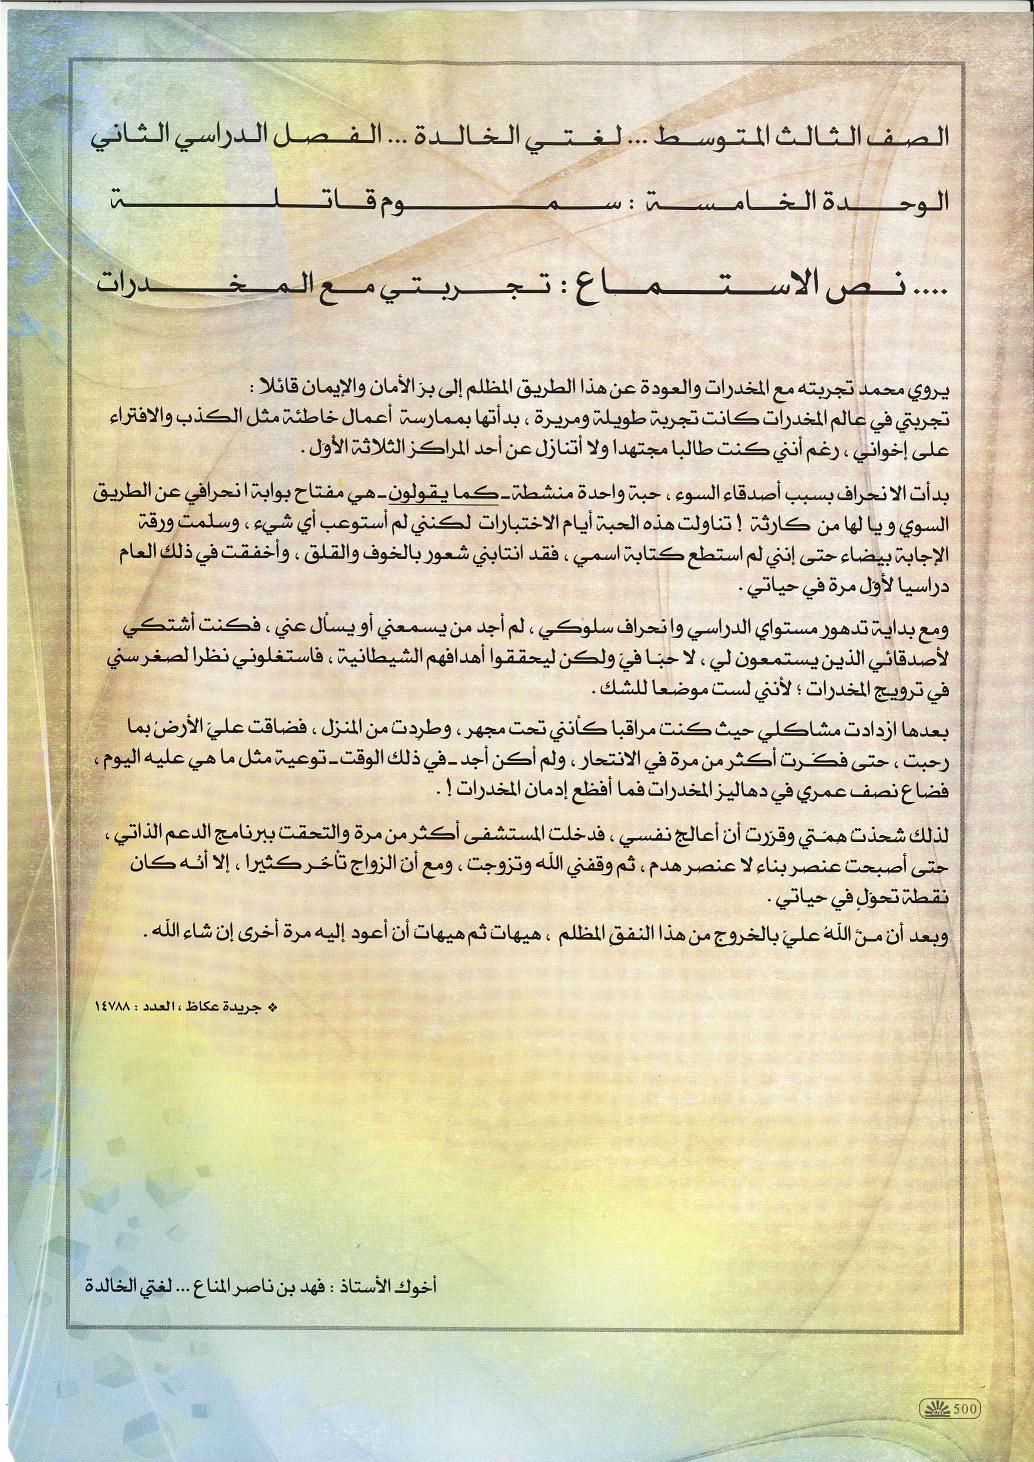 الصف الثالث المتوسط ... لغتي الخالدة ... الفصل الدراسي الثاني
الوحدة الخامسة : سموم قاتلة
.... نص الاستماع : تجربتي مع المخدرات
يروي محمد تجربته مع المخدرات والعودة عن هذا الطريق المظلم إلى برّ الأمان والإيمان قائلا :
تجربتي في عالم المخدرات كانت تجربة طويلة ومريرة ، بدأتها بممارسة أعمال خاطئة مثل الكذب والافتراء
على إخواني ، رغم أنني كنت طالبا مجتهدا ولا أتنازل عن أحد المراكز الثلاثة الأول .
بدأت الانحراف بسبب أصدقاء السوء ، حبة واحدة منشطة ـ كما يقولون ـ هي مفتاح بوابة انحرافي عن الطريق
السوي و يا لها من كارثة ! تناولت هذه الحبة أيام الاختبارات لكنني لم أستوعب أي شيء ، وسلّمت ورقة
الإجابة بيضاء حتى إنني لم استطع كتابة اسمي ، فقد انتابني شعور بالخوف والقلق ، وأخفقت في ذلك العام
دراسيا لأوّل مرة في حياتي .
ومع بداية تدهور مستواي الدراسي وانحراف سلوكي ، لم أجد من يسمعني أو يسأل عني ، فكنت أشتكي
لأصدقائي الذين يستمعون لي ، لا حبّا فيّ ولكن ليحققوا أهدافهم الشيطانية ، فاستغلوني نظرا لصغر سني
في ترويج المخدرات ؛ لأنني لست موضعا للشك .
بعدها ازدادت مشاكلي حيث كنت مراقبا كأنني تحت مجهر ، وطردت من المنزل ، فضاقت عليّ الأرضُ بما
رحبت ، حتى فكّرت أكثر من مرة في الانتحار ، ولم أكن أجد ـ في ذلك الوقت ـ توعية مثل ما هي عليه اليوم ،
فضاع نصف عمري في دهاليز المخدرات فما أفظع إدمان المخدرات ! .
لذلك شحذت همّتي وقرّرت أن أعالج نفسي ، فدخلت المستشفى أكثر من مرة والتحقت ببرنامج الدعم الذاتي ،
حتى أصبحت عنصر بناء لا عنصر هدم ، ثم وقفني الله وتزوجت ، ومع أنّ الزواج تأخّر كثيرا ، إلا أنّه كان
نقطة تحوّلٍ في حياتي .
وبعد أنْ منّ اللهُ عليّ بالخروج من هذا النفق المظلم ، هيهات ثم هيهات أن أعود إليه مرة أخرى إن شاء الله .
❖ جريدة عكاظ ، العدد : ١٤٧٨٨
أخوك الأستاذ : فهد بن ناصر المناع ... لغتي الخالدة
500